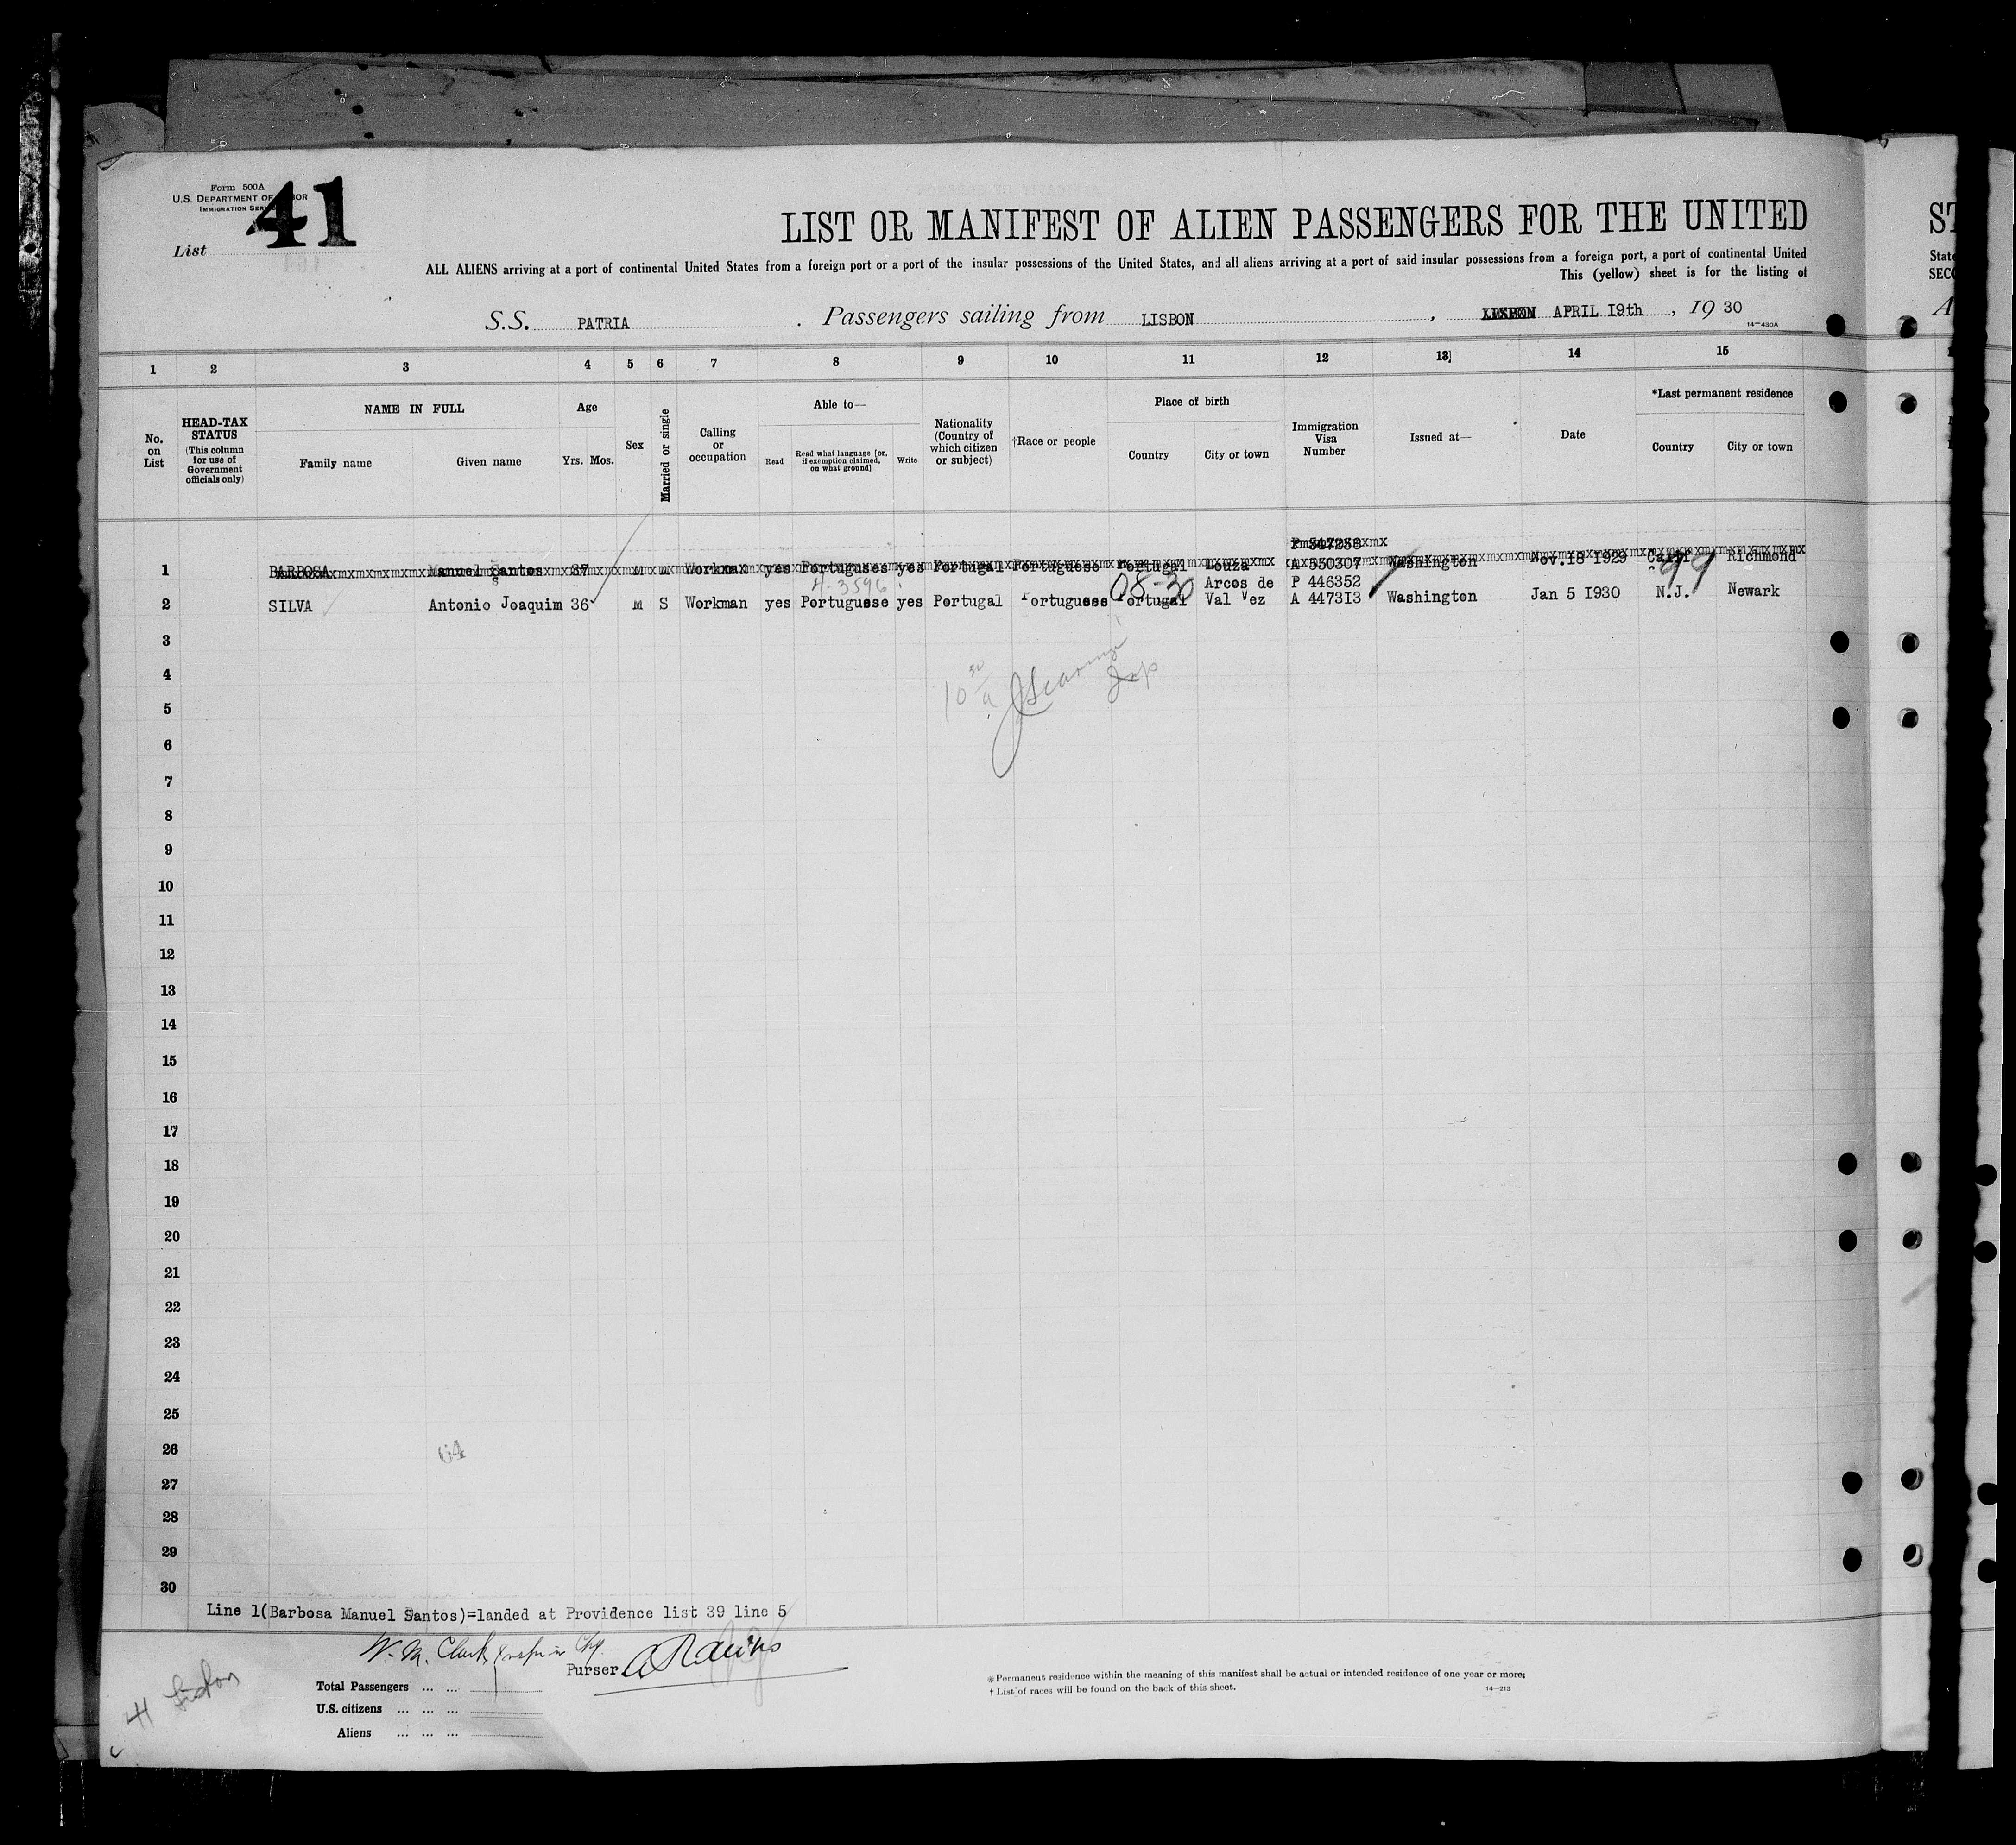 Form 500A
U.S. DEPARTMENT OF LABOR
IMMIGRATION SERVICE
List 41
LIST OR MANIFEST OF ALIEN PASSENGERS FOR THE UNITED
ALL ALIENS arriving at a port of continental United States from a foreign port or a port of the insular possessions of the United States, and all aliens arriving at a port of said insular possessions from a foreign port, a port of continental United
This (yellow) sheet is for the listing of
S.S. PATRIA . Passengers sailing from LISBON , LISBON APRIL I9th , 19 30
14—430A
1 2 3 4 5 6 7 8 9 10 11 12 13 14 15
No. on List
HEAD-TAX STATUS (This column for use of Government officials only)
NAME IN FULL
Family name Given name
Age
Yrs. Mos.
Sex
Married or single
Calling or occupation
Able to—
Read
Read what language [or, if exemption claimed, on what ground]
Write
Nationality (Country of which citizen or subject)
†Race or people
Place of birth
Country City or town
Immigration Visa Number
Issued at—
Date
*Last permanent residence
Country City or town
1 BARBOSA Manuel Santos 37 M M Workman yes Portugueses yes Portugal Portuguese Portugal Louza A 550307 Washington Nov.I8 I929 Calif Richmond
4-3596
08-30
99
Arcos de P 446352
2 SILVA Antonio Joaquim 36 M S Workman yes Portuguese yes Portugal Portuguese Portugal Val Vez A 4473I3 Washington Jan 5 I930 N.J. Newark
3
4
5
6
7
8
9
10
11
12
13
14
15
16
17
18
19
20
21
22
23
24
25
26
64
27
28
29
30
Line 1(Barbosa Manuel Santos)=landed at Providence list 39 line 5
W. M. Clark
Purser
Total Passengers ... ...
U.S. citizens ... ... ...
Aliens ... ... ...
41 Lisbon
Permanent residence within the meaning of this manifest shall be actual or intended residence of one year or more.
† List of races will be found on the back of this sheet.
14—213
ST
State
SECO
A